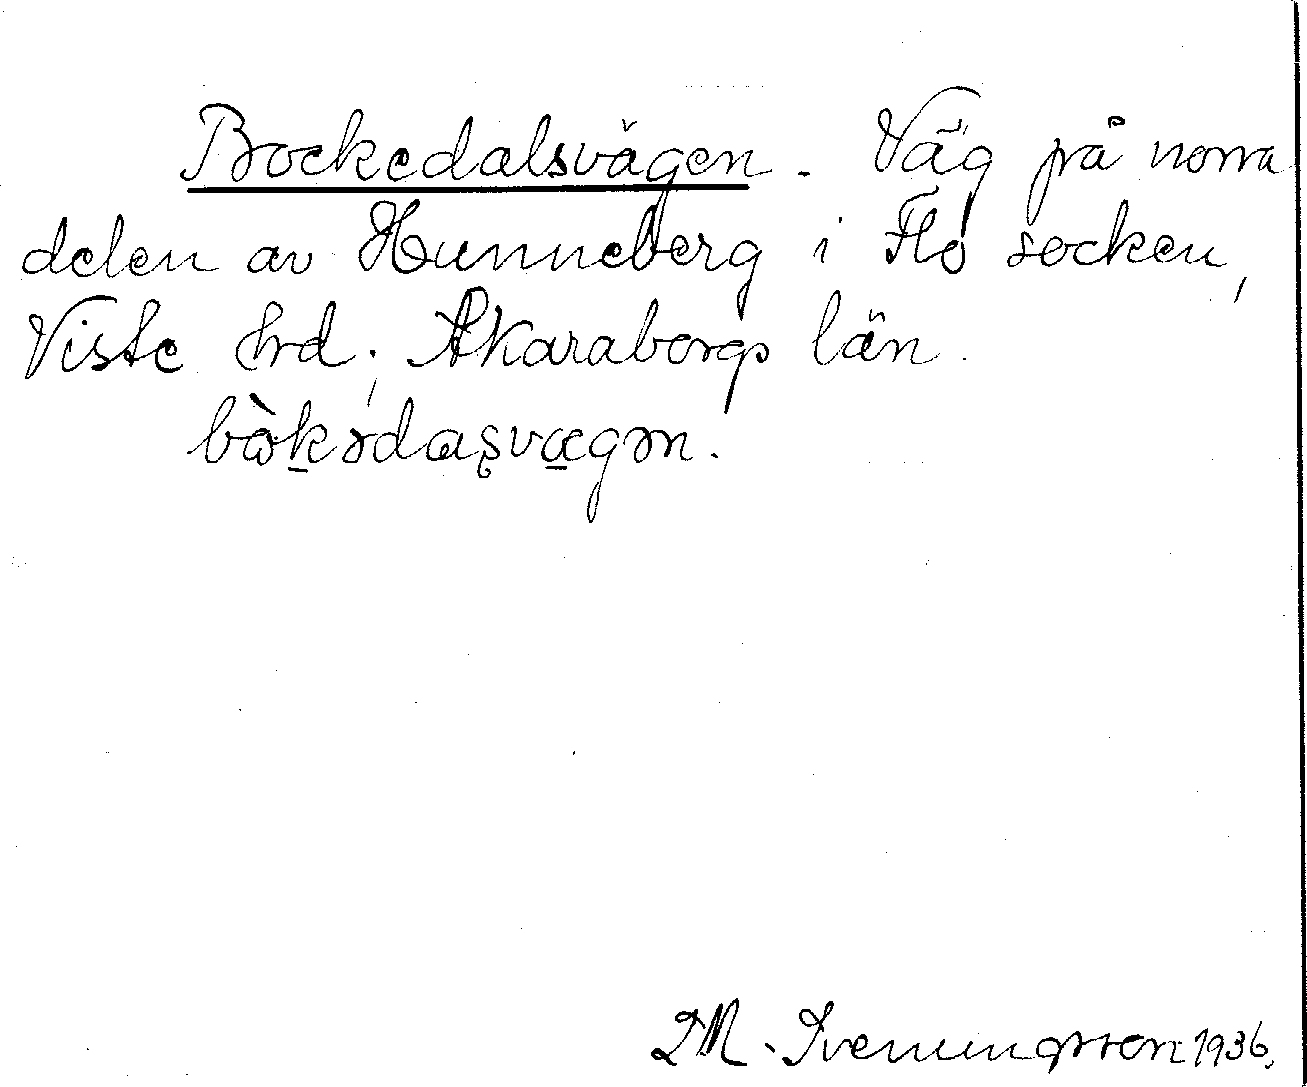 Bockedalsvägen. Väg på norra
delen av Hunneberg i Flo socken,
Viste hrd, Skaraborgs län.
bòkədasvægən.
M. Svenungsson 1936.